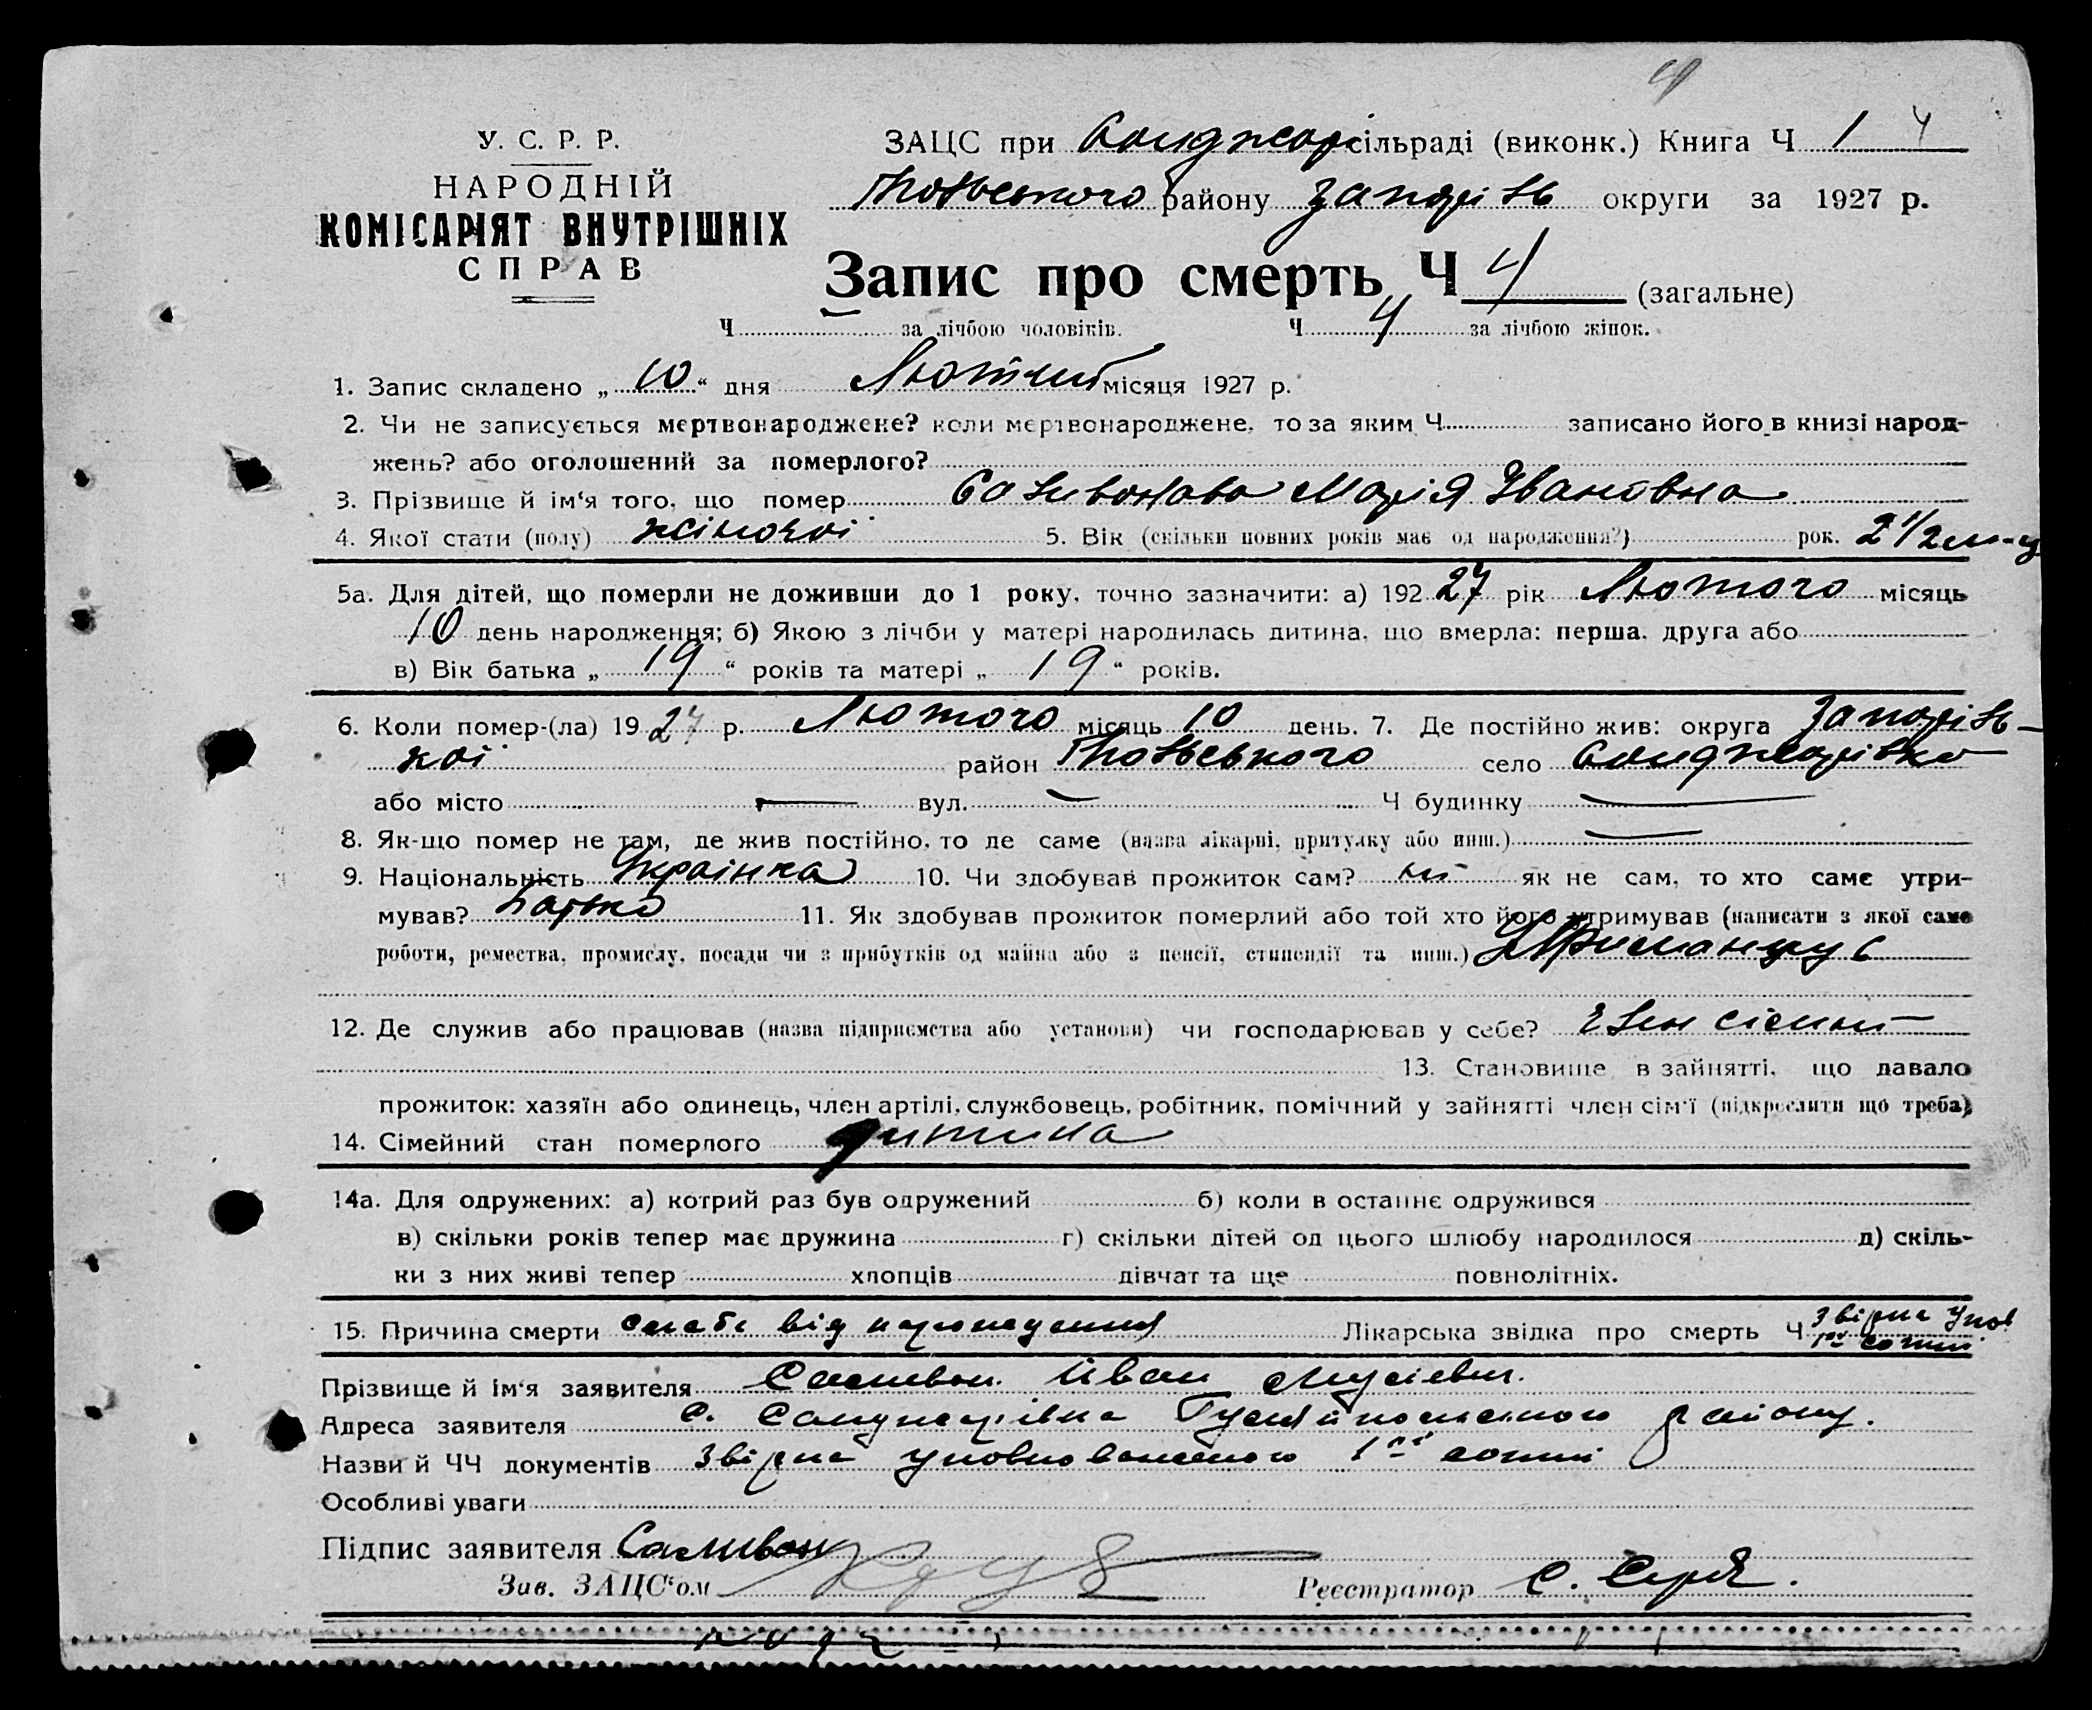 4
У. С. Р. Р.
НАРОДНІЙ
КОМІСАРІЯТ ВНУТРІШНІХ
СПРАВ
ЗАЦС при Санджар сільраді (виконк.) Книга Ч 1 4
району Запорізь округи за 1927 р.
Запис про смерть Ч 4 (загальне)
Ч — за лічбою чоловіків. Ч 4 за лічбою жінок.
1. Запис складено „ 10 “ дня Лютий місяця 1927 р.
2. Чи не записується мертвонароджене? коли мертвонароджене, то за яким Ч записано його в книзі народ-
жень? або оголошений за померлого?
3. Прізвище й ім‘я того, що помер Саливонова Марія Івановна
4. Якої стати (полу) жіночої 5. Вік (скільки повних років має од народження?) рок. 2 1/2 м-ц
5а. Для дітей, що померли не доживши до 1 року, точно зазначити: а) 192 27 рік Лютого місяць
10 день народження; б) Якою з лічби у матері народилась дитина, що вмерла: перша, друга або
в) Вік батька „ 19 “ років та матері „ 19 “ років.
6. Коли помер-(ла) 19 27 р. Лютого місяць 10 день. 7. Де постійно жив: округа Запорізь-
кої район село Санджарівка
або місто — вул. — Ч будинку —
8. Як-що помер не там, де жив постійно, то де саме (назва лікарні, притулку або инш.) —
9. Національність Українка 10. Чи здобував прожиток сам? ні як не сам, то хто саме утри-
мував? батько 11. Як здобував прожиток померлий або той хто його утримував (написати з якої саме
роботи, ремества, промислу, посади чи з прибутків од майна або з пенсії, стипендії та инш.)
12. Де служив або працював (назва підприємства або установи) чи господарював у себе?
13. Становище в зайнятті, що давало
прожиток: хазяїн або одинець, член артілі, службовець, робітник, помічний у зайнятті член сім‘ї (підкреслити що треба)
14. Сімейний стан померлого дитина
14а. Для одружених: а) котрий раз був одружений б) коли в останнє одружився
в) скільки років тепер має дружина г) скільки дітей од цього шлюбу народилося д) скіль-
ки з них живі тепер хлопців дівчат та ще повнолітніх.
15. Причина смерти слаба від народження Лікарська звідка про смерть Ч Звірка Упов
1ої сотні
Прізвище й ім‘я заявителя Саливон Иван Мусієвич.
Адреса заявителя с. Санджарівка Гуляйпольского району.
Назви й ЧЧ документів Звірка уповноваженого 1ої сотні
Особливі уваги
Підпис заявителя Саливон
Зав. ЗАЦС‘ом Реєстратор С.